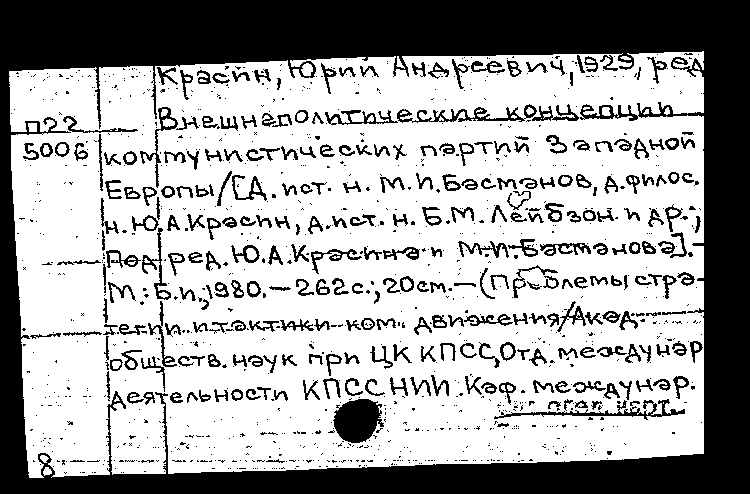 Красин, Юрий Андреевич, 1929, ред
П22 Внешнеполитические концепции
5006 коммунистических партий Западной
Европы/[Д. ист. н. М.И.Басманов, д.филос.
н. Ю.А.Красин, д.ист. н. Б.М. Лейбзон и др.;
Под ред. Ю.А.Красина и М.И.Басманова].-
М.: Б.и., 1980. — 262с.; 20см. — (Проблемы стра-
тегии и тактики ком. движения/Акад.
обществ. наук при ЦК КПСС, Отд. междунар
деятельности КПСС НИИ. Каф. междунар.
8